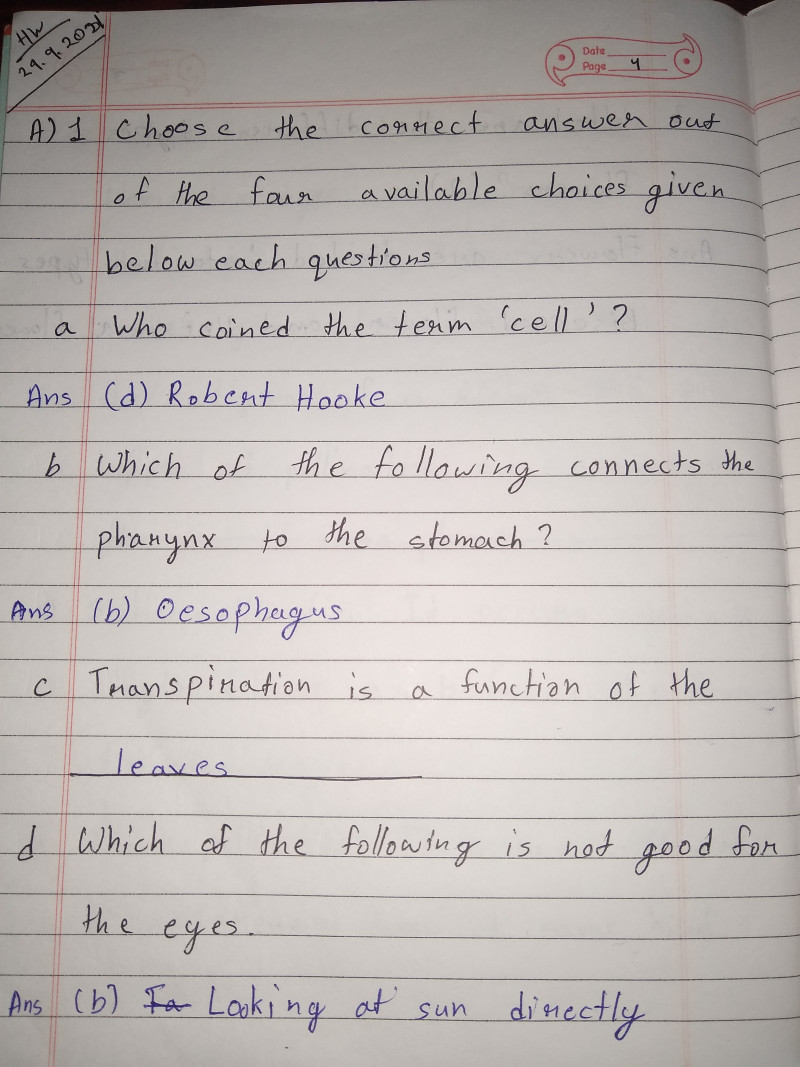 HW
29.9.2021
Date
Page 4
A) 1 Choose the correct answer out
of the four available choices given
below each questions
a Who coined the term 'cell'?
Ans (d) Robert Hooke
b Which of the following connects the
pharynx to the stomach?
Ans (b) Oesophagus
c Transpiration is a function of the
leaves
d Which of the following is not good for
the eyes.
Ans (b) Looking at sun directly